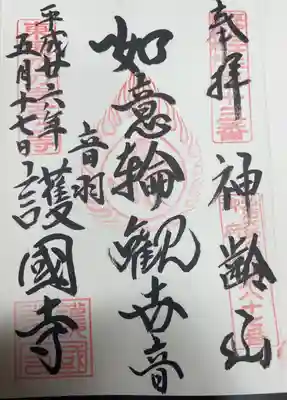 奉拝
神齢山
如意輪観世音
音羽
護國寺
平成廿六年
五月十七日